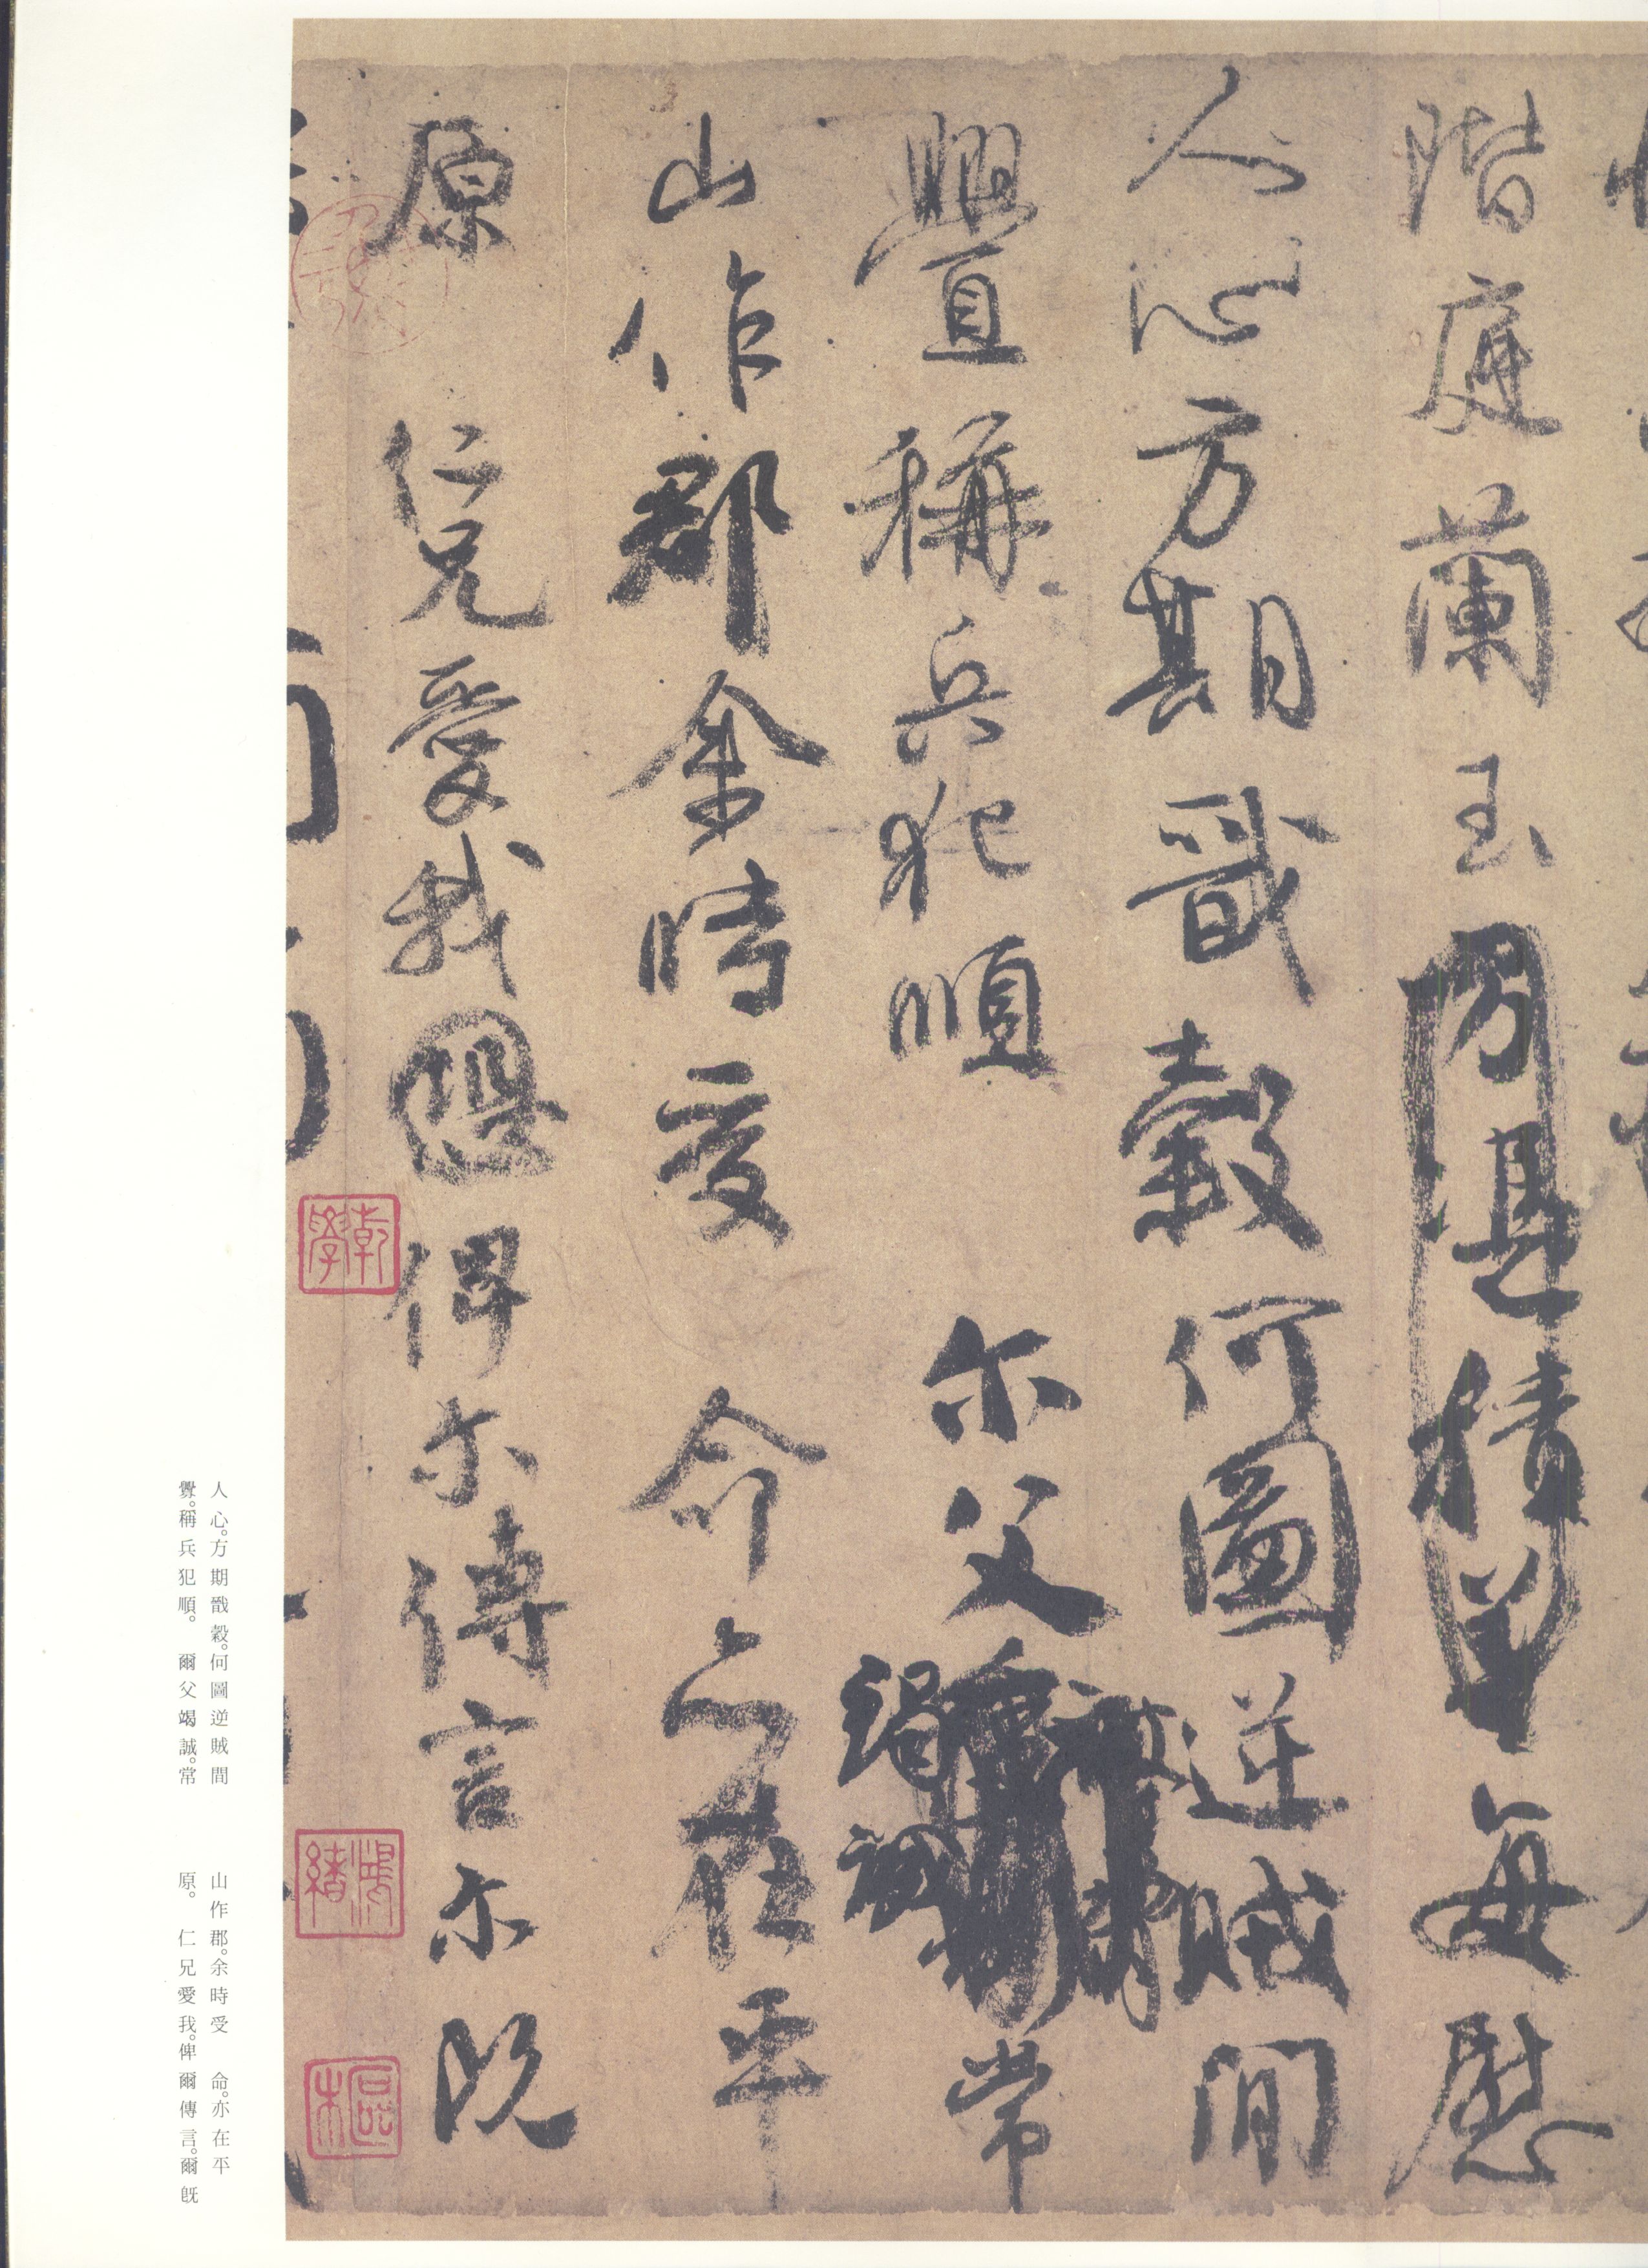 階庭蘭玉每慰
人心方期戩穀何圖逆賊間
釁稱兵犯順尔父竭誠常
山作郡余時受命亦在平
原仁兄愛我俾尔傳言尔既
乾學
人心。方期戩穀。何圖逆賊間
釁。稱兵犯順。爾父竭誠。常
山作郡。余時受命。亦在平
原。仁兄愛我。俾爾傳言。爾既